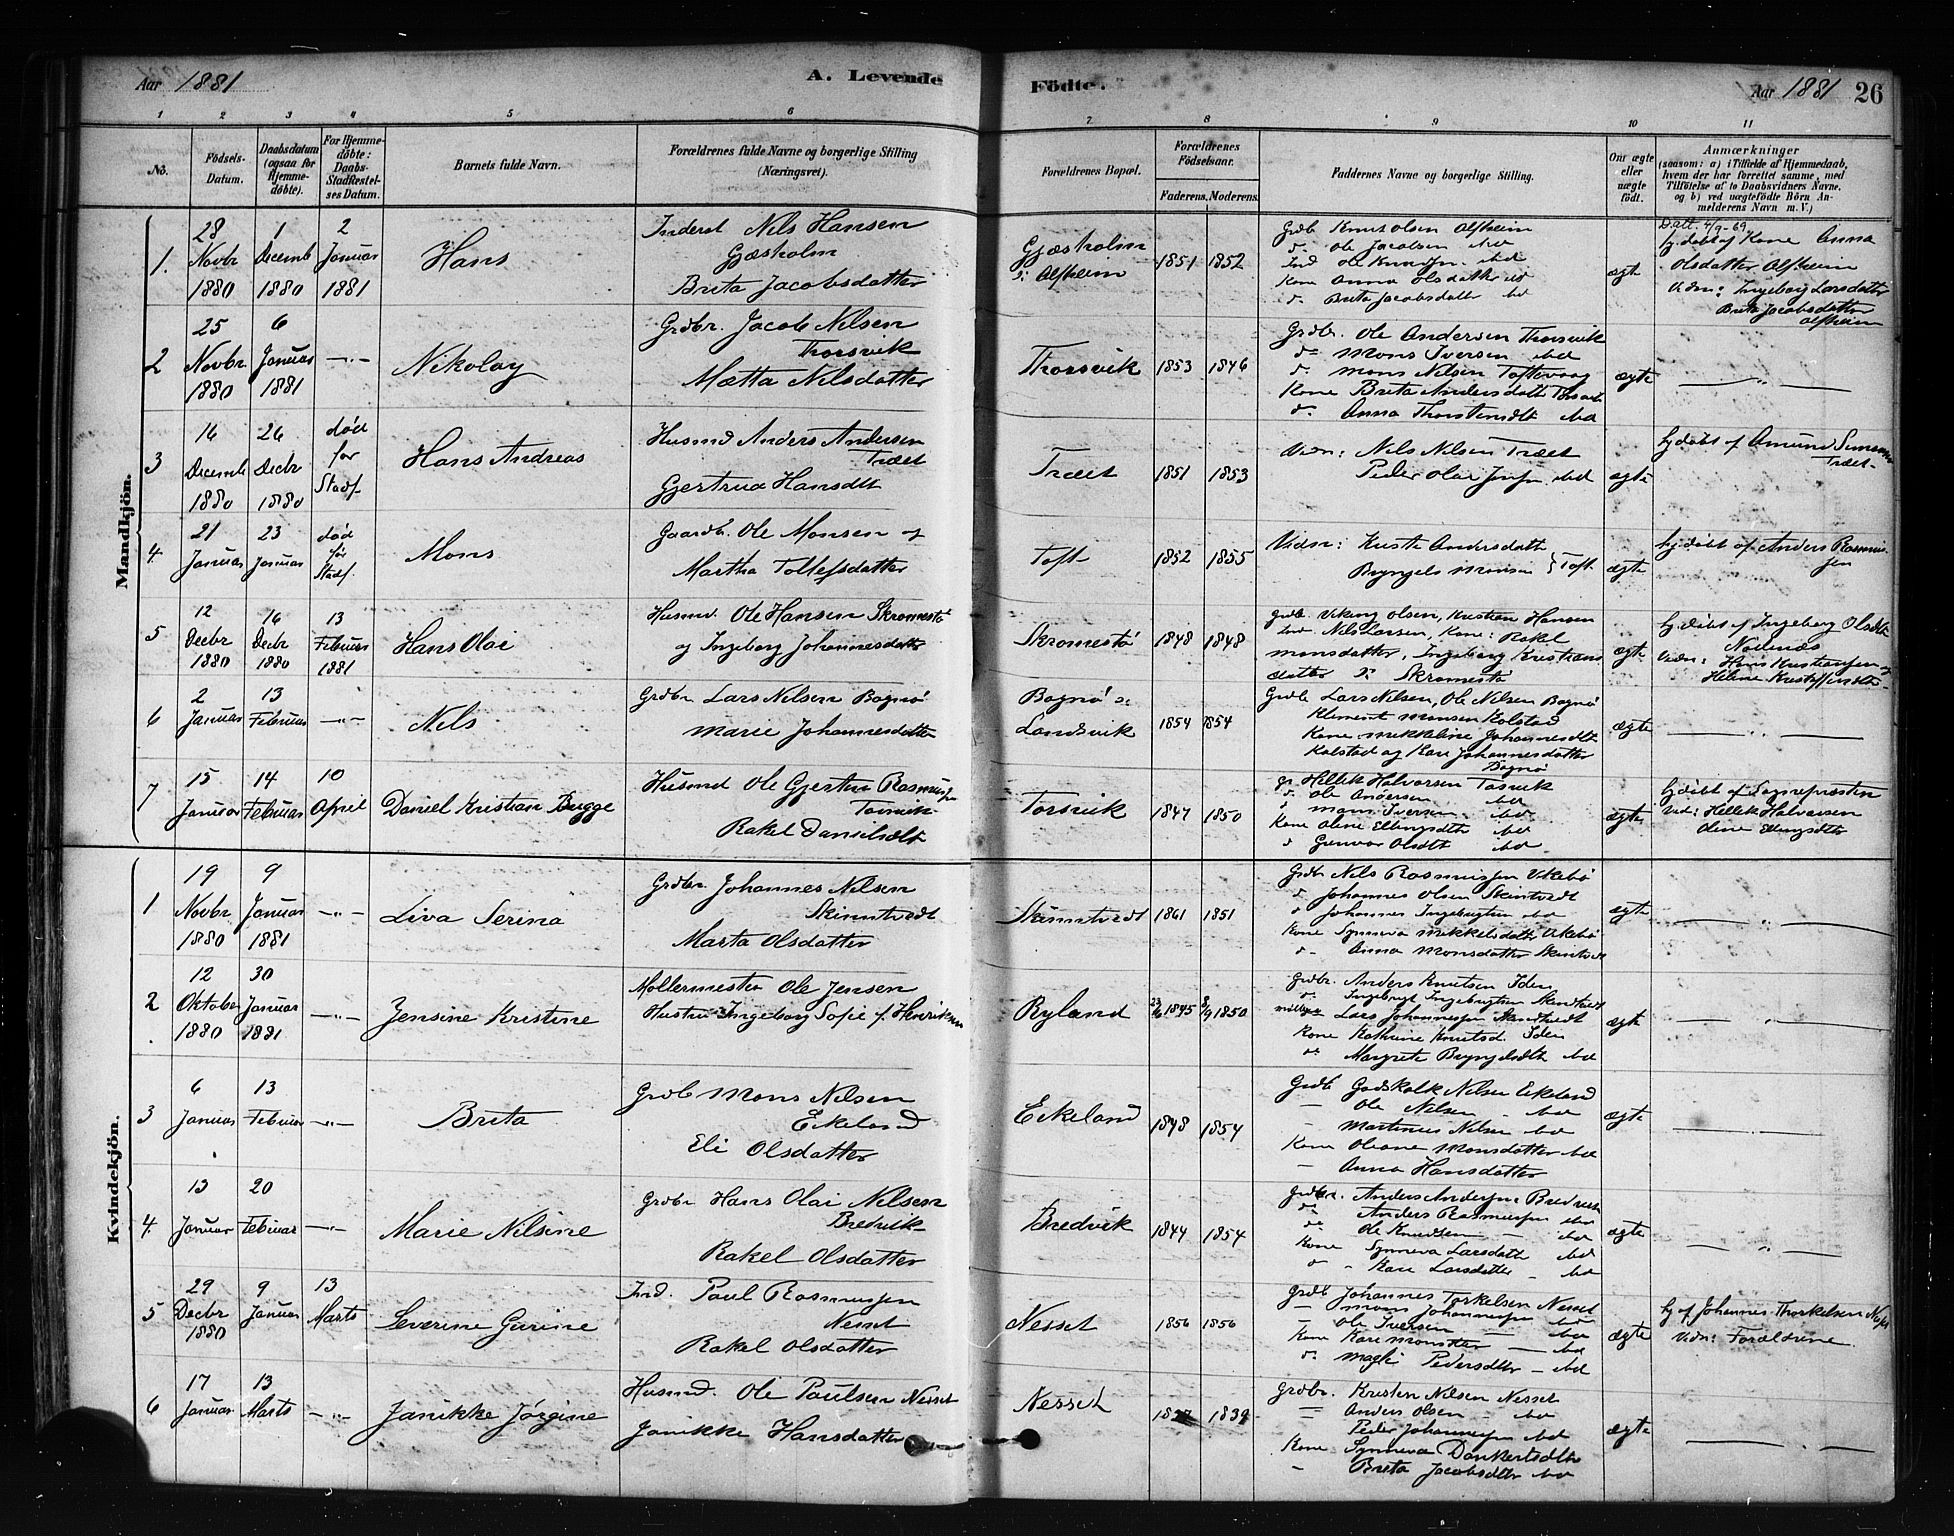 Aar 1881
A. Levende
Födte.
Aar 1881 26
1 2 3 4 5 6 7 8 9 10 11
No.
Födsels-Datum.
Daabsdatum (ogsaa for Hjemmedöbte).
For Hjemmedöbte: Daabs-Stadfæstelses Datum.
Barnets fulde Navn.
Forældrenes fulde Navne og borgerlige Stilling (Næringsvei).
Forældrenes Bopæl.
Forældrenes Födselsaar.
Faderens. Moderens.
Faddernes Navne og borgerlige Stilling.
Om ægte eller uægte född.
Anmærkninger
(saasom: a) i Tilfælde af Hjemmedaab, hvem der har forrettet samme, med Tilföielse af to Daabsvidners Navne, og b) ved uægtefödte Börn Anmelderens Navn m. V.)
Mandkjön.
1. 28 Novbr 1880
1 Decemb 1880
2 Januar 1881
Hans
Inderst Nils Hansen
Gjæsholm
Brita Jacobsdatter
Gjæsholm
i Alfheim
1851 1852
Grdb Knut Olsen Alfheim
d. Ole Jacobsen ibd
Ind Ole Knudsn. ibd
Kone Anna Olsdatter ibd
d. Brita Jacobsdatter ibd
ægte
Datt. 4/9-69
hjdøbt af Kone Anna
Olsdatter Alfheim
Vidn: Ingeborg Larsdatter
Brita Jacobsdatter
Alfheim
2 25 Novbr 1880
6 Januar 1881
-"-
Nikolay
Grdbr. Jacob Nilsen
Thorsvik
Mætta Nilsdatter
Thorsvik
1853 1846
Grdbr. Ole Andersen Thorsvik
d= Mons Iversen ibd
d. Mons Nilsen Toftevaag
Kone Brita Andersdatt Thorsvik
d. Anna Thorstensdtt ibd
ægte
-"-
3 16 Decemb 1880
26 Decbr 1880
død for Stadf.
Hans Andreas
Husmd Anders Andersen
Træet
Gjertrud Hansdtt
Træet
1851 1853
Vidn: Nils Nilsen Træet
Peder Olai Jensn. ibd
ægte
hjdøbt af Amund
Træet
4. 21 Januar
23 Januar
død før Stadf.
Mons
Gaardb. Ole Monsen og
Martha Tollefsdatter
Toft
1852 1855
Vidn: Andersdatter
Bryngels Monsen } Toft
ægte
hjdøbt af Anders Rasmus-
sen
5 12 Decbr 1880
16 Decbr 1880
13 Februar 1881
Hans Olai
Husmd. Ole Hansen Skromestø
og Ingeborg Johannesdatter
Skromestø
1848 1848
Grdb. Viking Olsen, Kristian Hansen
Ind Nils Larsen, Kone: Rakel
Monsdatter, Ingeborg Kristians
datter d: Skromestø
ægte
hjdøbt af Ingeborg Olsdtr
Vidn: Hans Kristiansen og
6 2 Januar
13 Februar
-"-
Nils
Grdbr Lars Nilsen Bognø
Marie Johannesdatter
Bognø d:
Landsvik
1854 1854
Grdb Lars Nilsen, Ole Nilsen Bognø
Klement Monsen Kolstad
Kone Mikkeline Johannesdtt
Kolstad og Kari Johannesdatter
Bognø
ægte
-"-
7 15 Januar
14 Februar
10 April
Daniel Kristian Bugge
Husmd Ole Gjertin Rasmussen
Torsvik
Rakel Danielsdtt
Torsvik
1847 1850
gr Hellek Halvorsen Tosvik
d. Ole Andersen ibd
d Mons Iversen. ibd
Kone Oline Ellingsdtr ibd
d Gunvor Olsdtt ibd
ægte
hjdøbt af Sognepresten
Vid: Hellek Halvorsen
Oline Ellingsdtr
Kvindekjön.
1 19 Novbr 1880
9 Januar 1881
-"-
Liva Serina
Grdbr Johannes Nilsen
Skinntvedt
Marta Olsdatter
Skinntvedt
1861 1851
Grdb Nils Rasmussen Vikebø
d Johannes Olsen Skintvedt
d Johannes Ingebrigtsen ibd
Kone Synneva Mikkelsdatter Vikebø
d. Anna Monsdatter Skintvedt
ægte
-"-
2 12 Oktober 1880
30 Januar 1881
-"-
Jensine Kristine
Møllermester Ole Jensen
Hustru Ingeborg Sofie f. Henriksen
Ryland
1845 8/9 1850
Grdbr. Anders Knutsen Iden
d. Ingebrigt Ingebrigtsen Skindtvedt
Lars Johannessen Skindtvedt
Kone Kathrine Knutsd. Iden
d. Margrete Bryngelsdtr ibd
ægte
-"-
3 6 Januar
13 Februar
-"-
Brita
Grdb Mons Nilsen
Eikeland
Eli Olsdatter
Eikeland
1848 1854
Grdb Godskalk Nilsen Eikeland
- Ole Nilsen - ibd
- Martinus Nilsen ibd
Kone Oleane Monsdatter ibd
- Anna Hansdatter
ægte
-"-
4. 13 Januar
20 Februar
-"-
Marie Nilsine
Grdbr Hans Olai Nilsen
Bredvik
Rakel Olsdatter
Bredvik
1844 1854
Grdbr. Anders Andersen Bredvik
d. Anders Rasmussen ibd
d. Ole Knudsen - ibd
Kone Synneva Larsdatt ibd
d - Kari Larsdatter - ibd
ægte
-"-
5 29 Decbr 1880
9 Januar
13 Marts
Severine Gurine
Ind. Paul Rasmussen
Nesset
Rakel Olsdatter
Nesset
1856 1856
Grdb Johannes Torkelsen Nesset
- Mons Johannessen ibd
- Ole Iversen - ibd
Kone Kari Monsdtr - ibd
d. Magli Pedersdtter - ibd
ægte
hj af Johannes Thorkelsen
Vidn: Forældrene
6 17 Januar
13 Marts
-"-
Janikke Jørgine
Husmd. Ole Paulsen Nesset
Janikke Hansdatter
Nesset
1839
Grdbr. Kristen Nilsen Nesset
= Anders Olsen - ibd
Peder Johannessen ibd
Kone Synneva Dankertsdtr
- Brita Jacobsdtr ibd
ægte
-"-